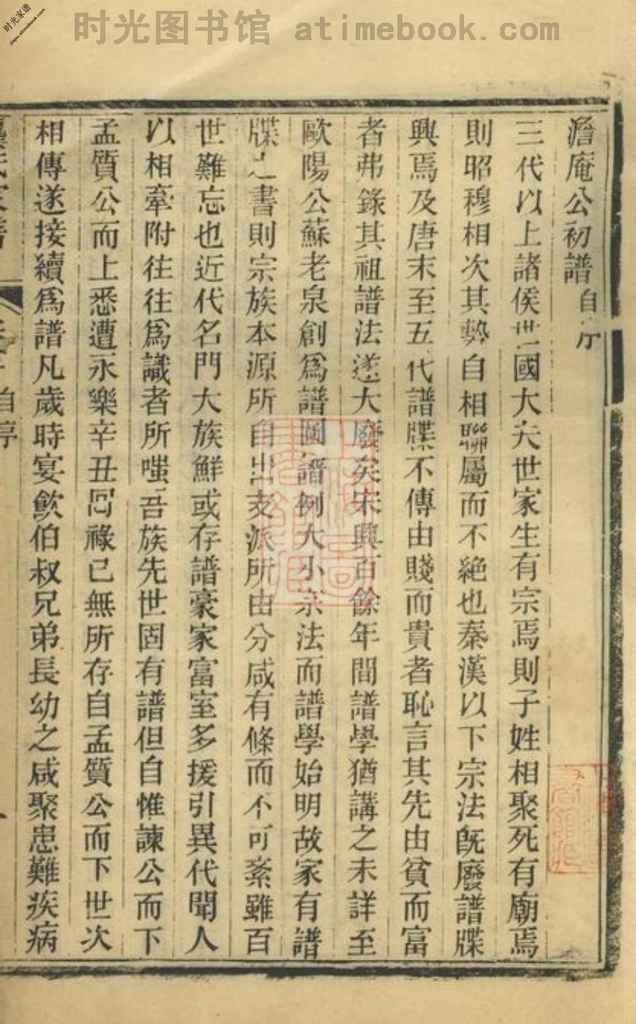 时光图书馆 atimebook.com
时光家谱
www.atimebook.com
澹庵公初譜自序
三代以上諸侯世國大夫世家生有宗焉則子姓相聚死有廟焉
則昭穆相次其勢自相聯屬而不絕也秦漢以下宗法旣廢譜牒
興焉及唐末至五代譜牒不傳由賤而貴者恥言其先由貧而富
者弗錄其祖譜法遂大廢矣宋興百餘年間譜學猶講之未詳至
歐陽公蘇老泉創爲譜圖譜例大小宗法而譜學始明故家有譜
牒之書則宗族本源所自出支派所由分咸有條而不可紊雖百
世難忘也近代名門大族鮮或存譜豪家富室多援引異代聞人
以相牽附往往爲識者所嗤吾族先世固有譜但自惟諫公而下
孟質公而上悉遭永樂辛丑回祿已無所存自孟質公而下世次
相傳遂接續爲譜凡歲時宴飮伯叔兄弟長幼之咸聚患難疾病
氏家譜
自序